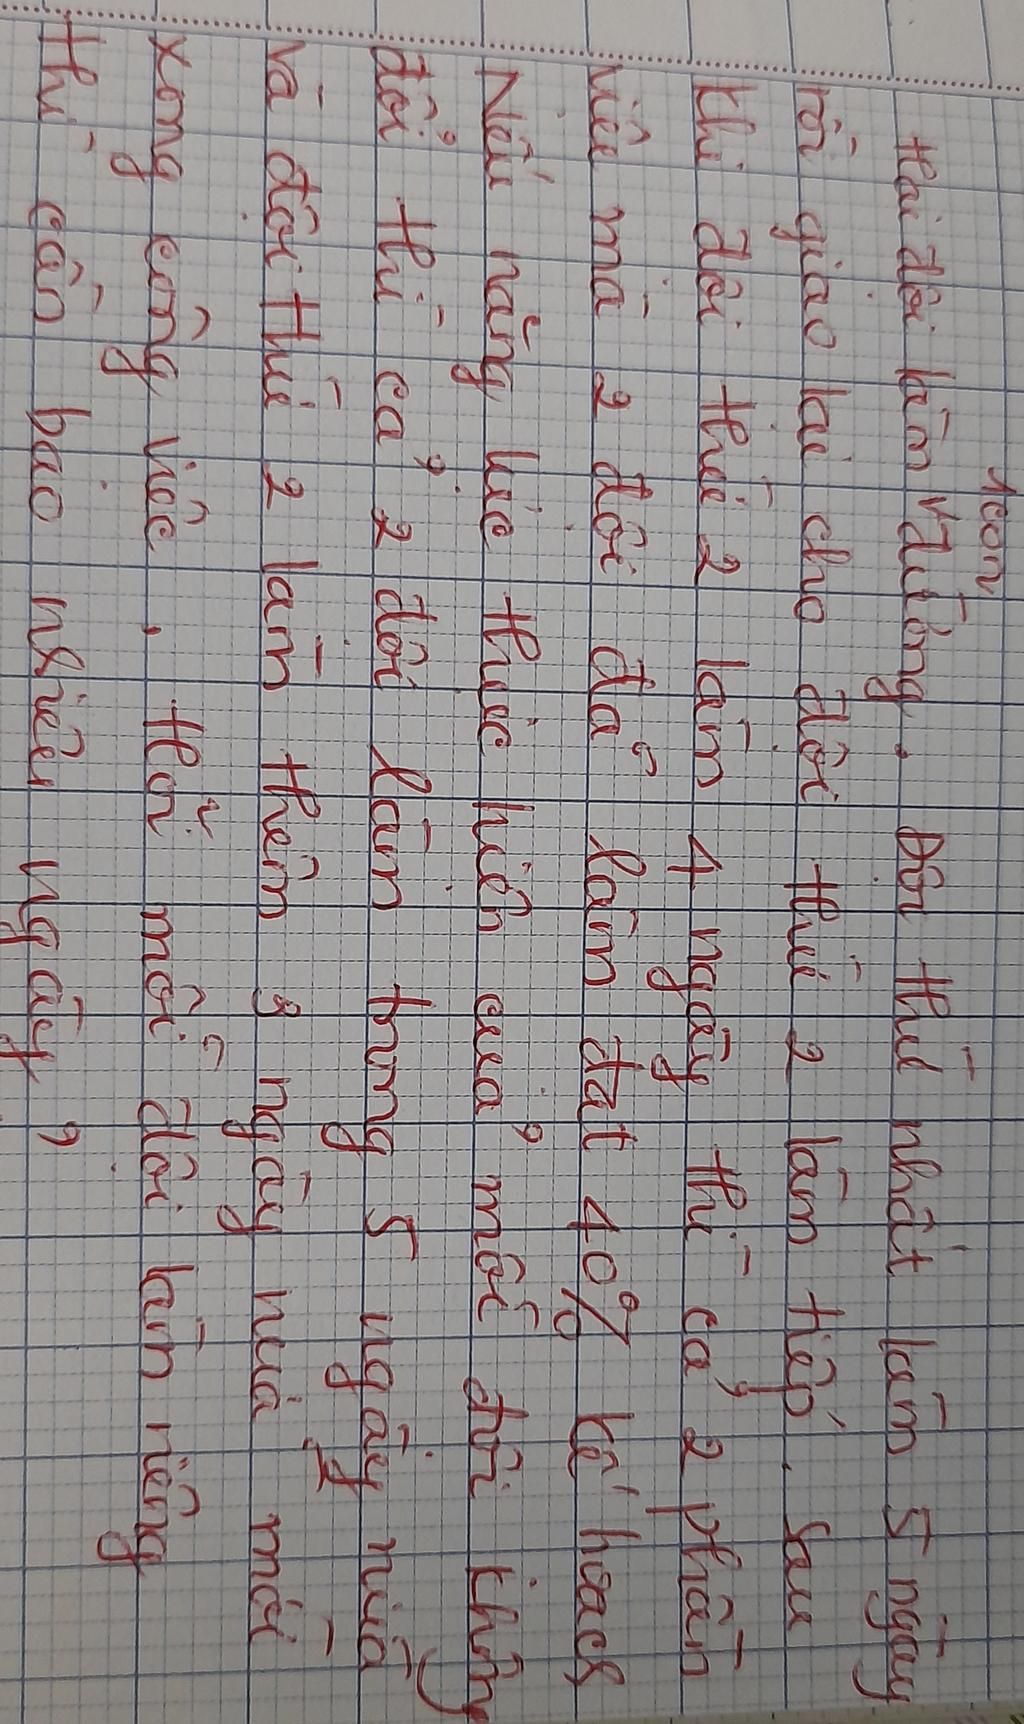 1 con
Hai đội làm đường. Đội thứ nhất làm 5 ngày
rồi giao lại cho đội thứ 2 làm tiếp. Sau
khi đội thứ 2 làm 4 ngày thì cả 2 phần
việc mà 2 đội đã làm đạt 40% kế hoạch
Nếu năng lực thực hiện của mỗi đội không
đổi thì cả 2 đội làm trong 5 ngày nữa
và đội thứ 2 làm thêm 3 ngày nữa mới
xong công việc. Hỏi mỗi đội làm riêng
thì cần bao nhiêu ngày?